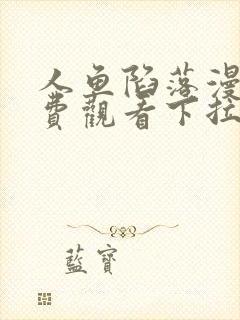 人鱼陷落漫
費觀看下拉
藍寶